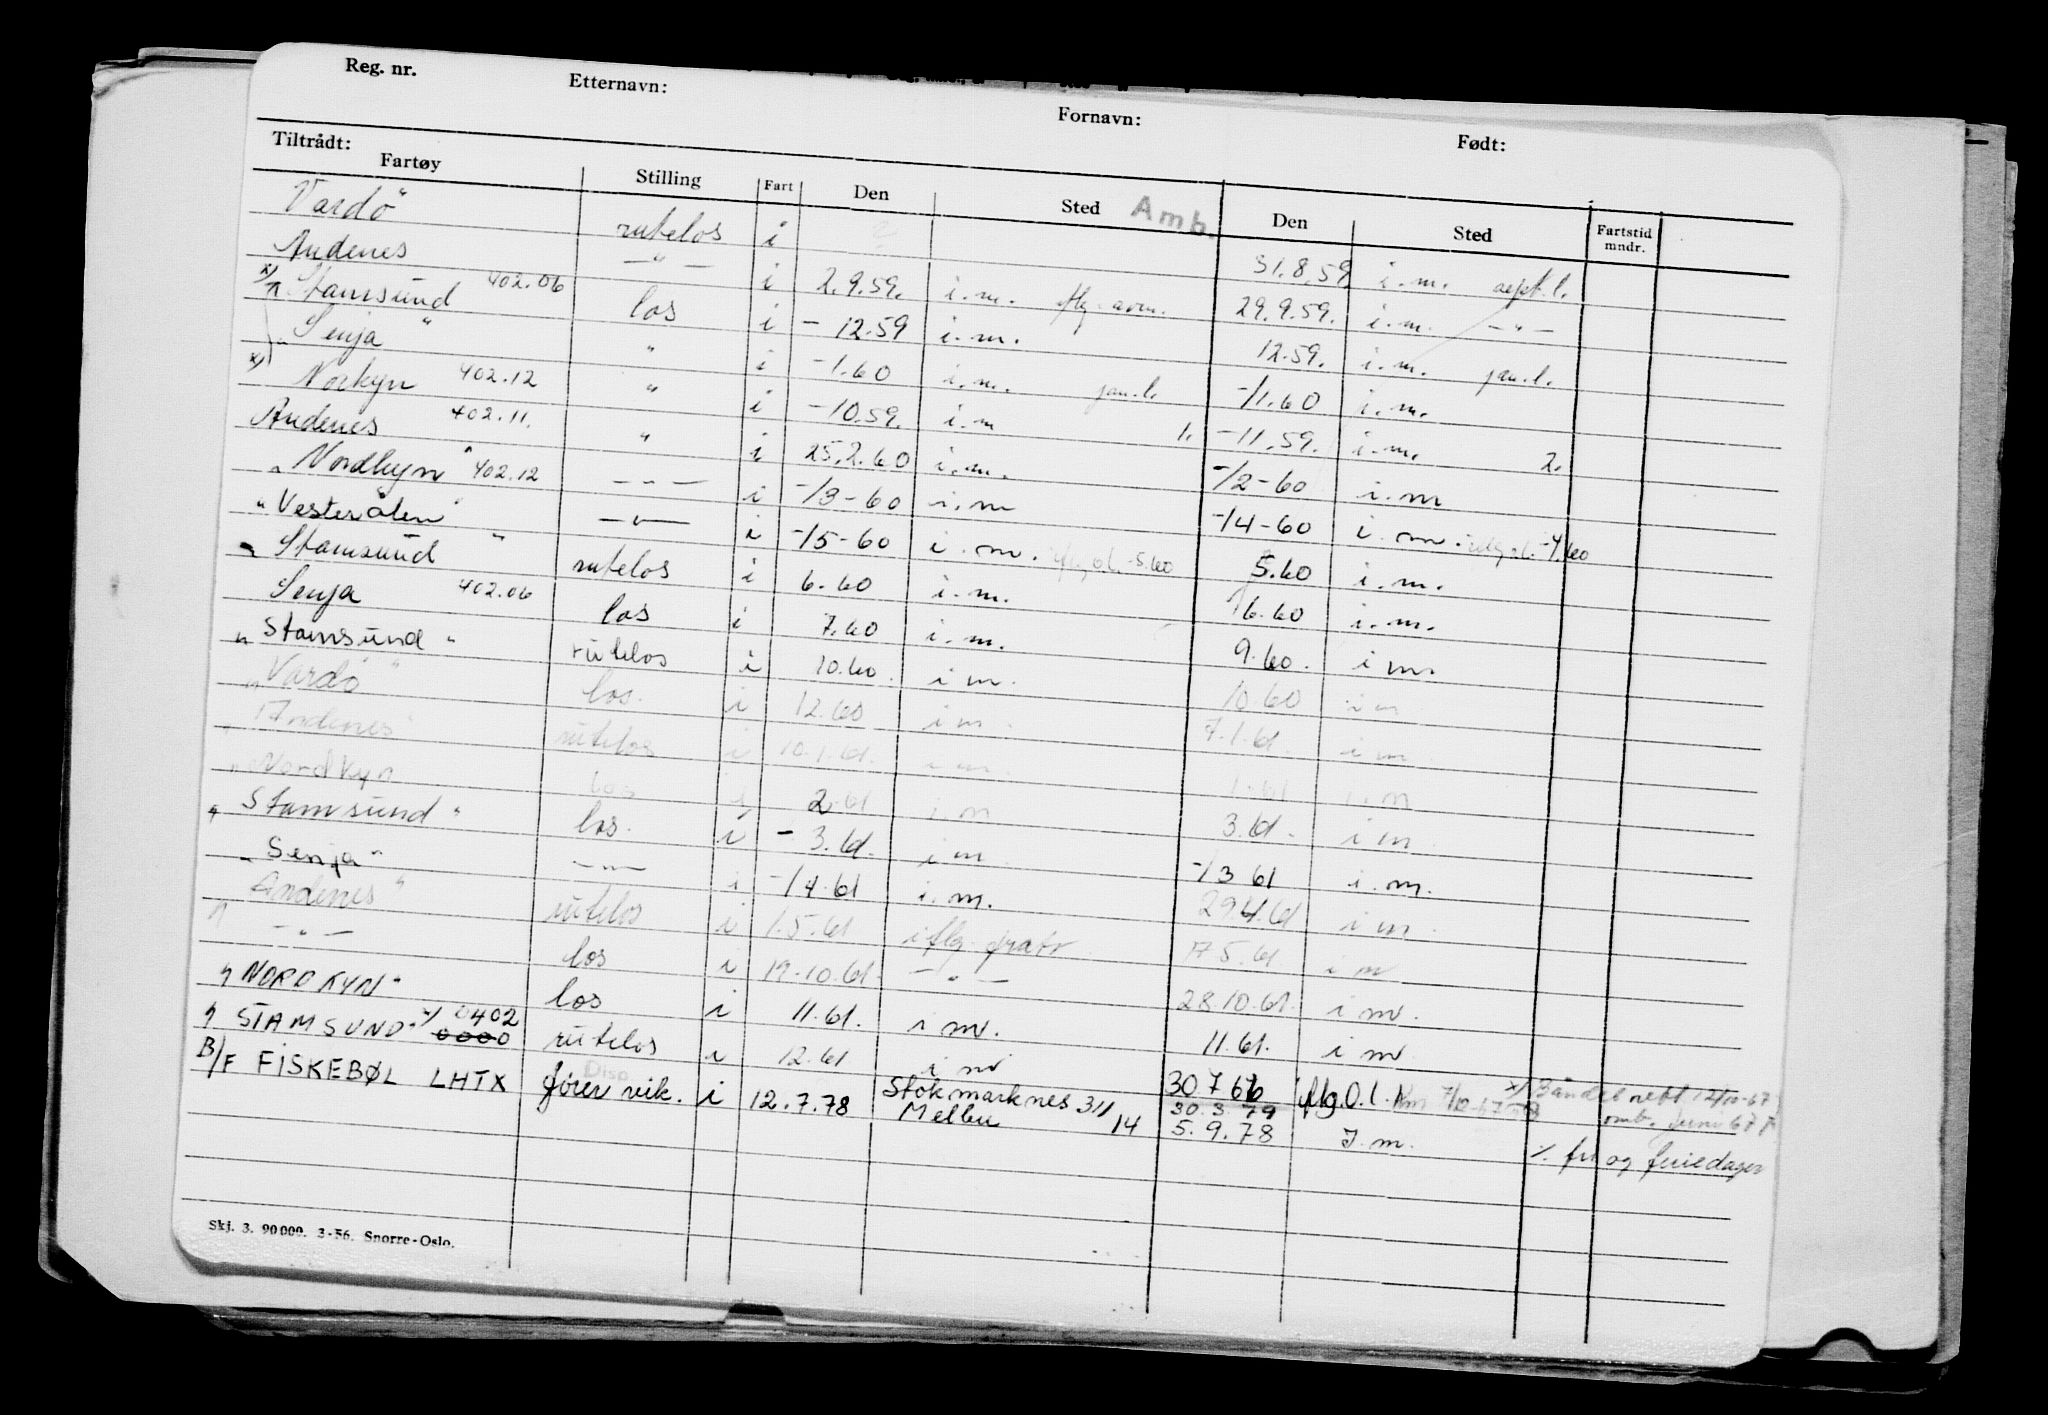 Reg. nr. Etternavn: Fornavn: Født:
Tiltrådt:
Fartøy Stilling Fart Den Sted Amb. Den Sted Fartstid mndr.
Vardö" rutelos i 31.8.59 i.m. sept.l.
Andenes —"— i 2.9.59. i.m. 29.9.59. i.m. —"—
x/ " Stamsund 402.06 los i - 12.59 i.m. 12.59. i.m. jan.l.
" Senja " " i -1.60 i.m. jan.l. -/1.60 i.m.
x/ Norkyn 402.12 " i -10.59. i.m 1. -11.59. i.m. 2.
Andenes 402.11. " i 25.2.60 i.m. -/2-60 i.m
" Nordkyn " 402.12 —"— i -/3-60 i.m -/4-60 i.m. -4.60
" Vesterålen " —"— i -/5-60 i.m. -5.60 5.60 i.m.
" Stamsund " rutelos i 6.60 i.m. 6.60 i.m.
Senja 402.06 los i 7.60 i.m. 9.60. i m.
" Stamsund " rutelos i 10.60. i m. 10.60 i m
" Vardö " los. i 12.60 i m. 7.1.61. i m
" Andenes " rutelos i 10.1.61. i m. 1.61 i m
" Nordkyn los i 2.61 i m 3.61. i m
" Stamsund " los. i - 3.61. i m -/3 61 i.m.
" Senja " —"— i -/4.61 i.m. 29.4.61 i m.
" Andenes " rutelos i 1.5.61 i flg. 17 5.61 i m
—"— los i 19.10.61. —"— 28 10.61. i m.
" NORDKYN " los i 11.61. i m. 11.61. i m
" STAMSUND " x/ 0402 0000 rutelos i 12.61 i m 30 7 66 i flg.O.l.
B/F FISKEBØL LHTX Disp fører vik. i 12.7.78 Stokmarknes 31/ 30.3.79 x/ 12/10-67
Melbu 14 5.9.78 I.m. juni 67
% fri og feriedager
Skj. 3. 90000. 3-56. Snorre-Oslo.